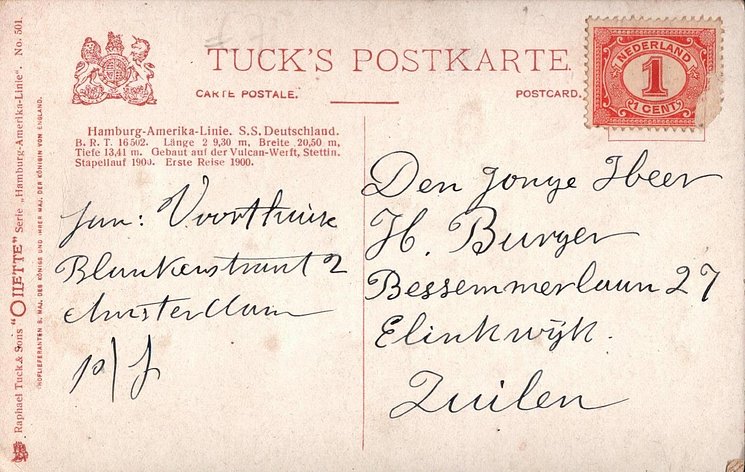 TUCK'S POSTKARTE.
CARTE POSTALE.
POSTCARD.
NEDERLAND
1
1 CENT
Hamburg-Amerika-Linie. S.S. Deutschland.
B. R. T. 16502. Länge 2 9,30 m, Breite 20,50 m,
Tiefe 13,41 m. Gebaut auf der Vulcan-Werft, Stettin.
Stapellauf 1900. Erste Reise 1900.
fam: Voorthuis
Blankenstraat 2
Amsterdam
p/f
Den Jonge Heer
H. Burger
Bessemmerlaan 27
Elinkwijk.
Zuilen
Raphael Tuck & Sons "OILETTE" Serie „Hamburg-Amerika-Linie". No. 501.
HOFLIEFERANTEN S. MAJ. DES KÖNIGS UND IHRER MAJ. DER KÖNIGIN VON ENGLAND.